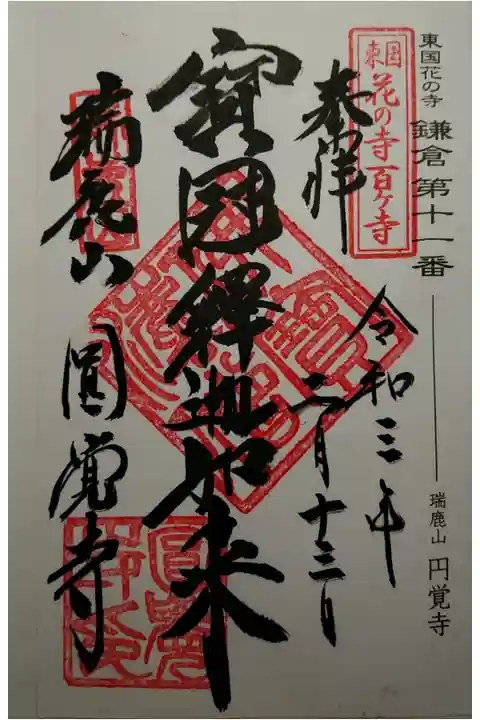 東国花の寺 鎌倉第十一番 瑞鹿山 円覚寺
東国
花の寺百ヶ寺
奉拝
令和三年
二月十三日
宝冠釋迦如来
瑞鹿山 圓覚寺